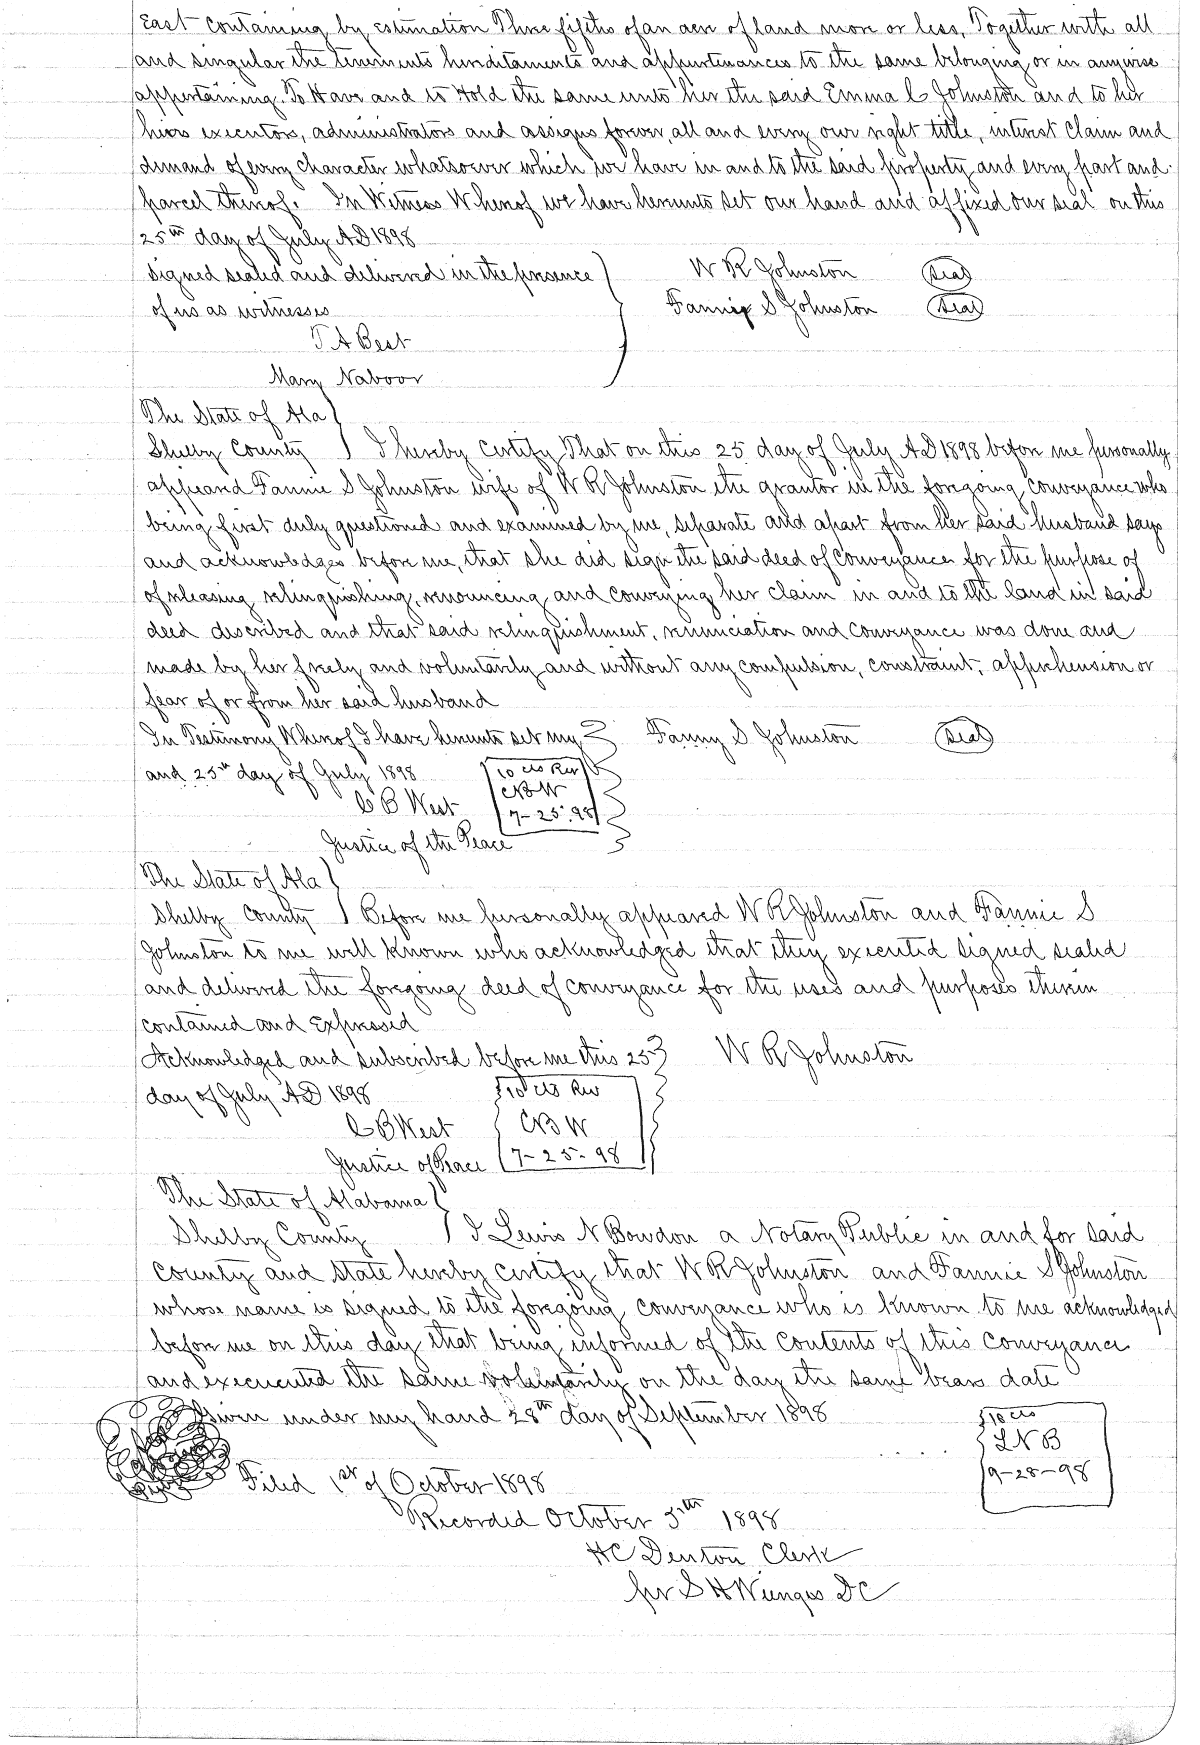 East containing by estimation Three fifths of an acre of land more or less, Together with all
and singular the tenements hereditaments and appurtenances to the same belonging or in anywise
appertaining. To Have and to Hold the same unto her the said Emma C Johnston and to her
heirs executors, administrators and assigns forever, all and every our right title, interest Claim and
demand of every Character whatsoever which we have in and to the said property and every part and
parcel thereof. In Witness Whereof we have hereunto set our hand and affixed our seal on this
25th day of July AD 1898
signed sealed and delivered in the presence } W R Johnston (Seal)
of us as witnesses Fannie S Johnston (Seal)
T A Best
Mary Naboor
The State of Ala }
Shelby County } I hereby Certify That on this 25 day of July AD 1898 before me personally
appeared Fannie S Johnston wife of W R Johnston the grantor in the foregoing conveyance who
being first duly questioned and examined by me, separate and apart from her said husband says
and acknowledges before me, that she did sign the said deed of Conveyance for the purpose of
of releasing relinquishing, renouncing and conveying her claim in and to the land in said
deed described and that said relinquishment, renunciation and conveyance was done and
made by her freely and voluntarily and without any compulsion, constraint, apprehension or
fear of or from her said husband
In Testimony Whereof I have hereunto set my } Fanny S Johnston (Seal)
and 25th day of July 1898 10 cts Rev
C B West CBW
7-25-98
Justice of the Peace
The State of Ala }
Shelby County } Before me personally appeared W R Johnston and Fannie S
Johnston to me well known who acknowledged that they executed signed sealed
and delivered the foregoing deed of conveyance for the uses and purposes therein
contained and Expressed
Acknowledged and subscribed before me this 25 } W R Johnston
day of July AD 1898 10 cts Rev
C B West CBW
Justice of Peace 7-25-98
The State of Alabama }
Shelby County } I Lewis N Bowdon a Notary Public in and for said
County and State hereby certify that W R Johnston and Fannie S Johnston
whose name is signed to the foregoing conveyance who is known to me acknowledged
before me on this day that being informed of the contents of this conveyance
and execucuted the same voluntarily on the day the same bears date
Given under my hand 28th day of September 1898
10 cts
LNB
9-28-98
Filed 1st of October 1898
Recorded October 5th 1898
HC Denton Clerk
per S H DC